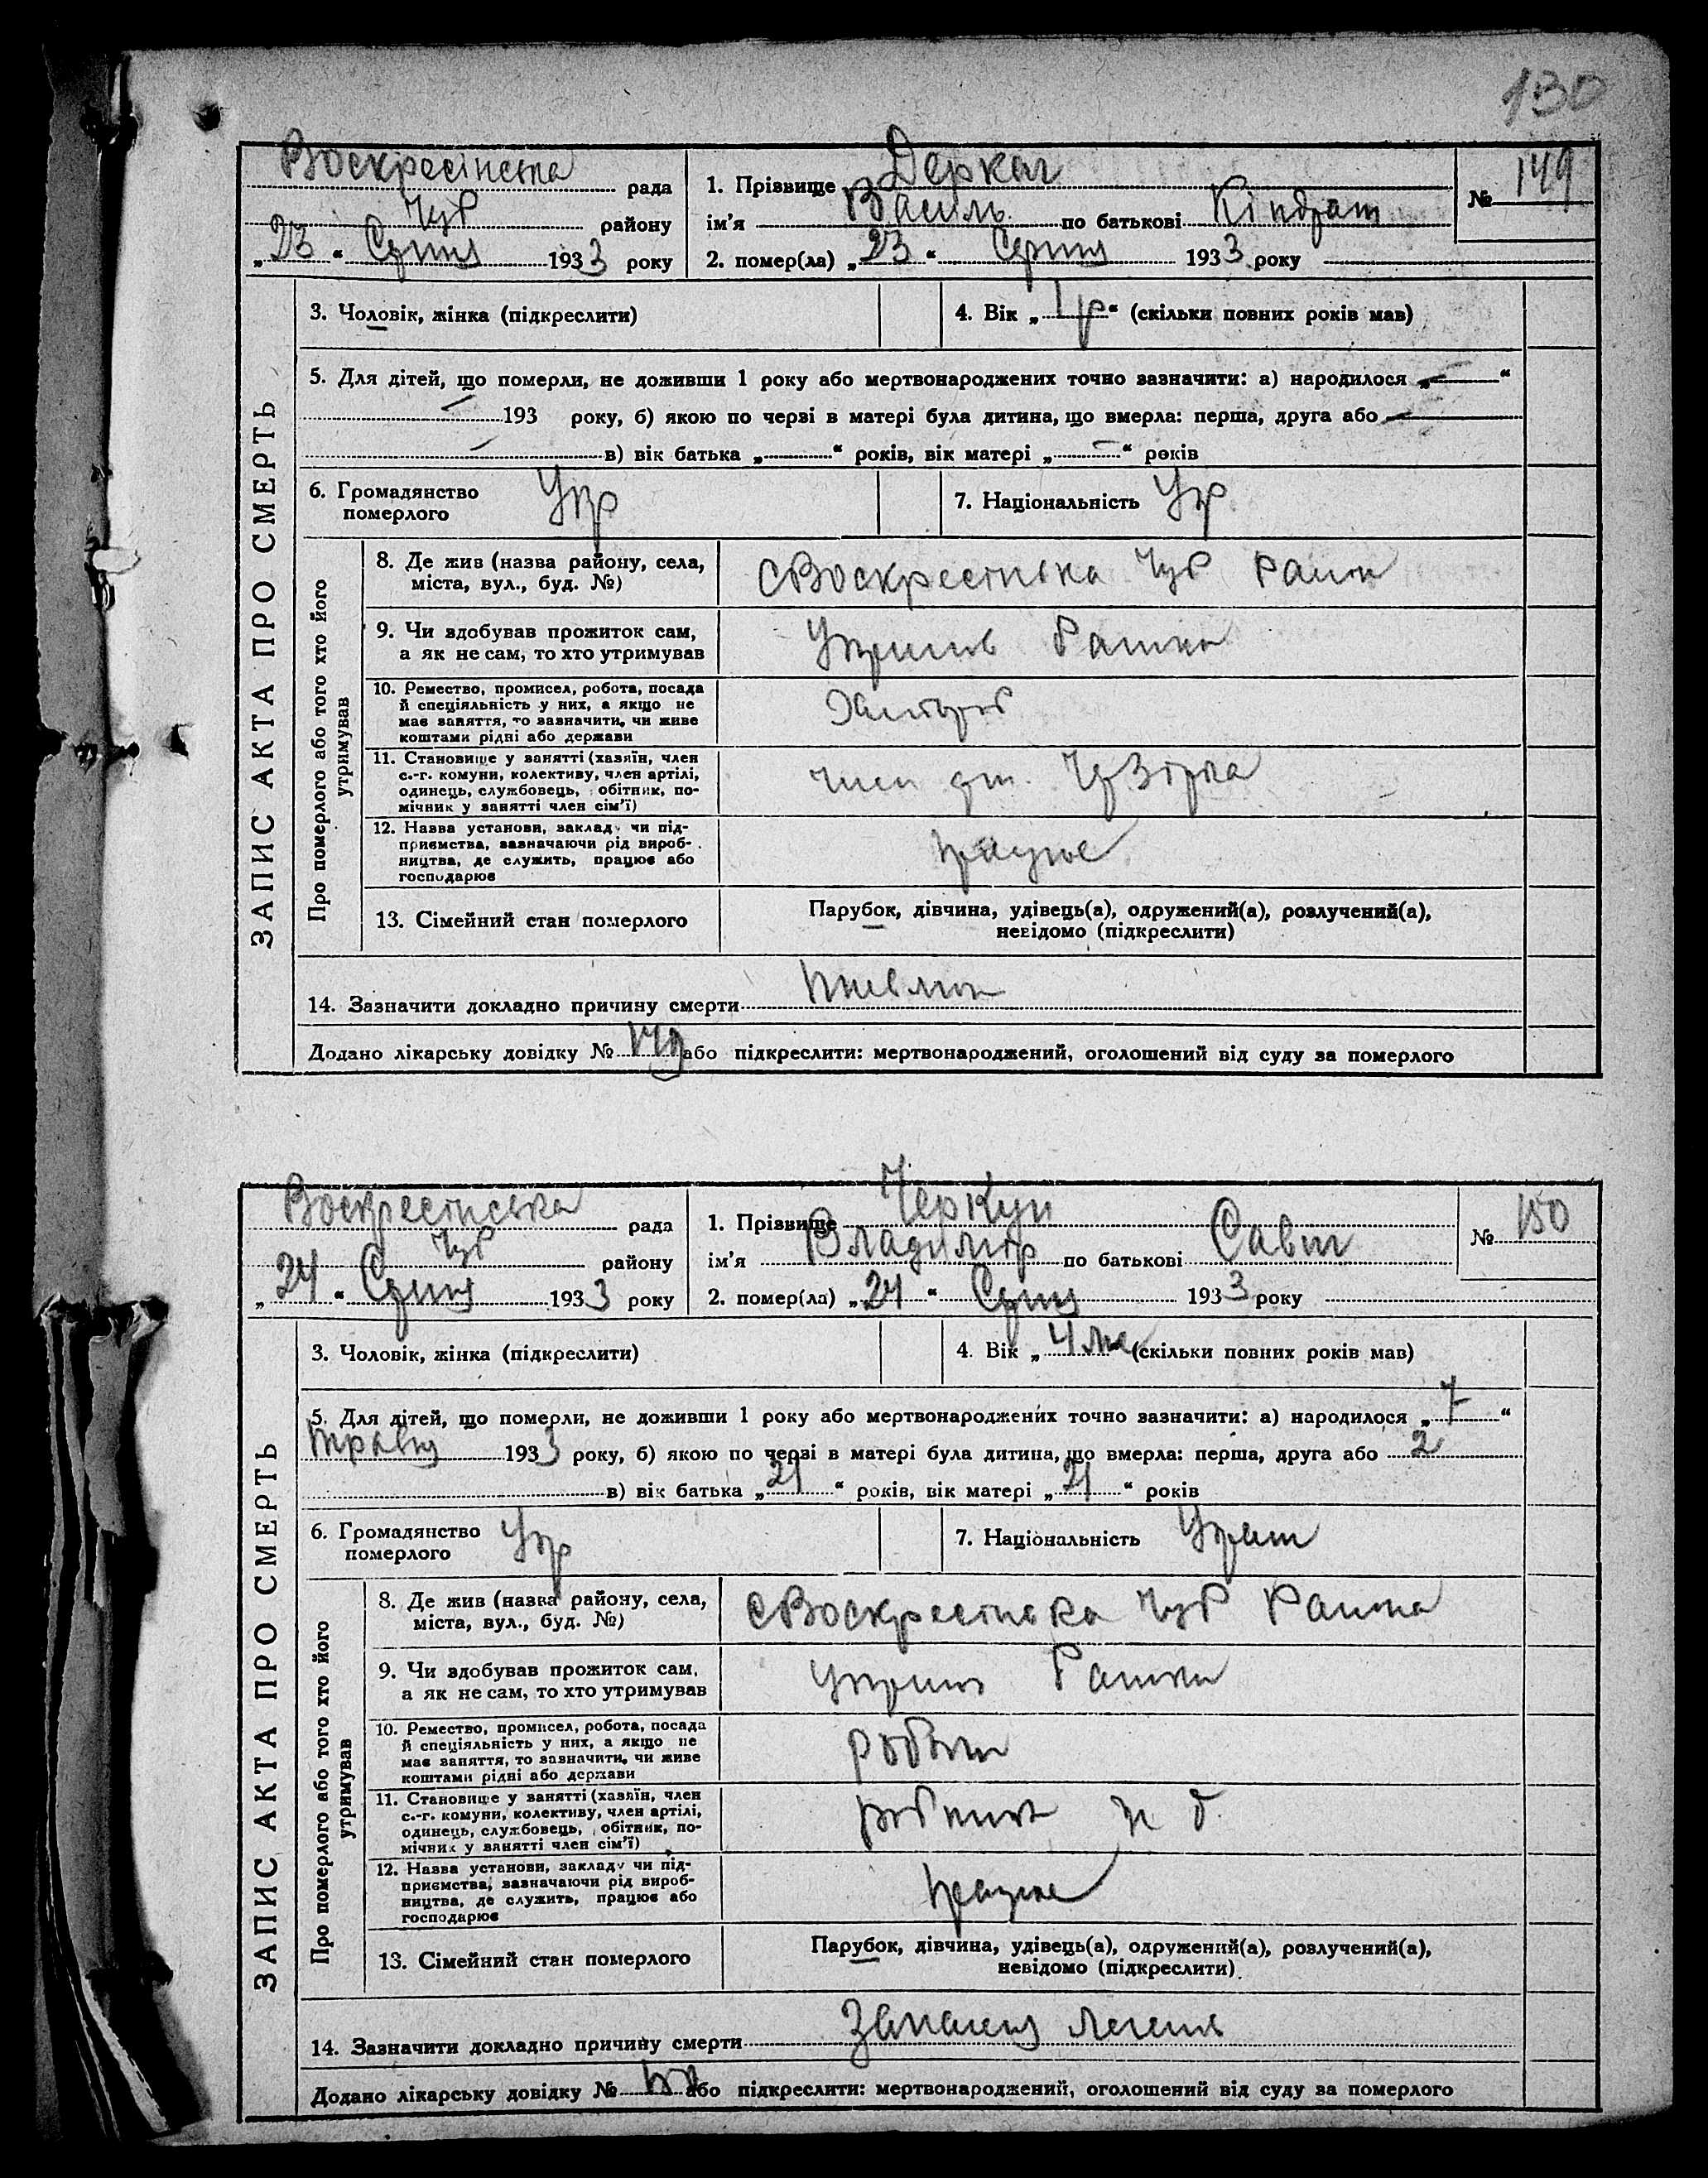 130
Воскресінська рада
Чуб району
„23“ Серпня 1933 року
1. Прізвище Деркач
ім'я Василь по батькові Кіндрат
2. помер(ла) „23“ Серпня 1933 року
№ 149
ЗАПИС АКТА ПРО СМЕРТЬ
3. Чоловік, жінка (підкреслити)
4. Вік „1 р“ (скільки повних років мав)
5. Для дітей, що померли, не доживши 1 року або мертвонароджених точно зазначити: а) народилося „—“
193 року, б) якою по черзі в матері була дитина, що вмерла: перша, друга або —
в) вік батька „ “ років, вік матері „—“ років
6. Громадянство
померлого Укр
7. Національність Укр
Про померлого або того хто його
утримував
8. Де жив (назва району, села,
міста, вул., буд. №)
с Воскресенька Чуб Район
9. Чи здобував прожиток сам,
а як не сам, то хто утримував
10. Ремество, промисел, робота, посада
й спеціяльність у них, а якщо не
має заняття, то зазначити, чи живе
коштами рідні або держави
11. Становище у занятті (хазяїн, член
с.-г. комуни, колективу, член артілі,
одинець, службовець, обітник, по-
мічник у занятті член сім'ї)
член Зірка
12. Назва установи, закладу чи під-
приємства, зазначаючи рід вироб-
ництва, де служить, працює або
господарює
працює
13. Сімейний стан померлого
Парубок, дівчина, удівець(а), одружений(а), розлучений(а),
невідомо (підкреслити)
14. Зазначити докладно причину смерти
Додано лікарську довідку № 149 або підкреслити: мертвонароджений, оголошений від суду за померлого
Воскресінська рада
Чуб району
„24“ Серпня 1933 року
1. Прізвище Черкун
ім'я Владимір по батькові Сави
2. помер(ла) „24“ Серпня 1933 року
№ 150
ЗАПИС АКТА ПРО СМЕРТЬ
3. Чоловік, жінка (підкреслити)
4. Вік „4 ме (скільки повних років мав)
5. Для дітей, що померли, не доживши 1 року або мертвонароджених точно зазначити: а) народилося „7“
травня 1933 року, б) якою по черзі в матері була дитина, що вмерла: перша, друга або 2
в) вік батька „21“ років, вік матері „21“ років
6. Громадянство
померлого Укр
7. Національність
Про померлого або того хто його
утримував
8. Де жив (назва району, села,
міста, вул., буд. №)
с Воскресенька Чуб Района
9. Чи здобував прожиток сам,
а як не сам, то хто утримував
10. Ремество, промисел, робота, посада
й спеціяльність у них, а якщо не
має заняття, то зазначити, чи живе
коштами рідні або держави
11. Становище у занятті (хазяїн, член
с.-г. комуни, колективу, член артілі,
одинець, службовець, обітник, по-
мічник у занятті член сім'ї)
12. Назва установи, закладу чи під-
приємства, зазначаючи рід вироб-
ництва, де служить, працює або
господарює
працює
13. Сімейний стан померлого
Парубок, дівчина, удівець(а), одружений(а), розлучений(а),
невідомо (підкреслити)
14. Зазначити докладно причину смерти Запаленя легень
Додано лікарську довідку № 150 або підкреслити: мертвонароджений, оголошений від суду за померлого